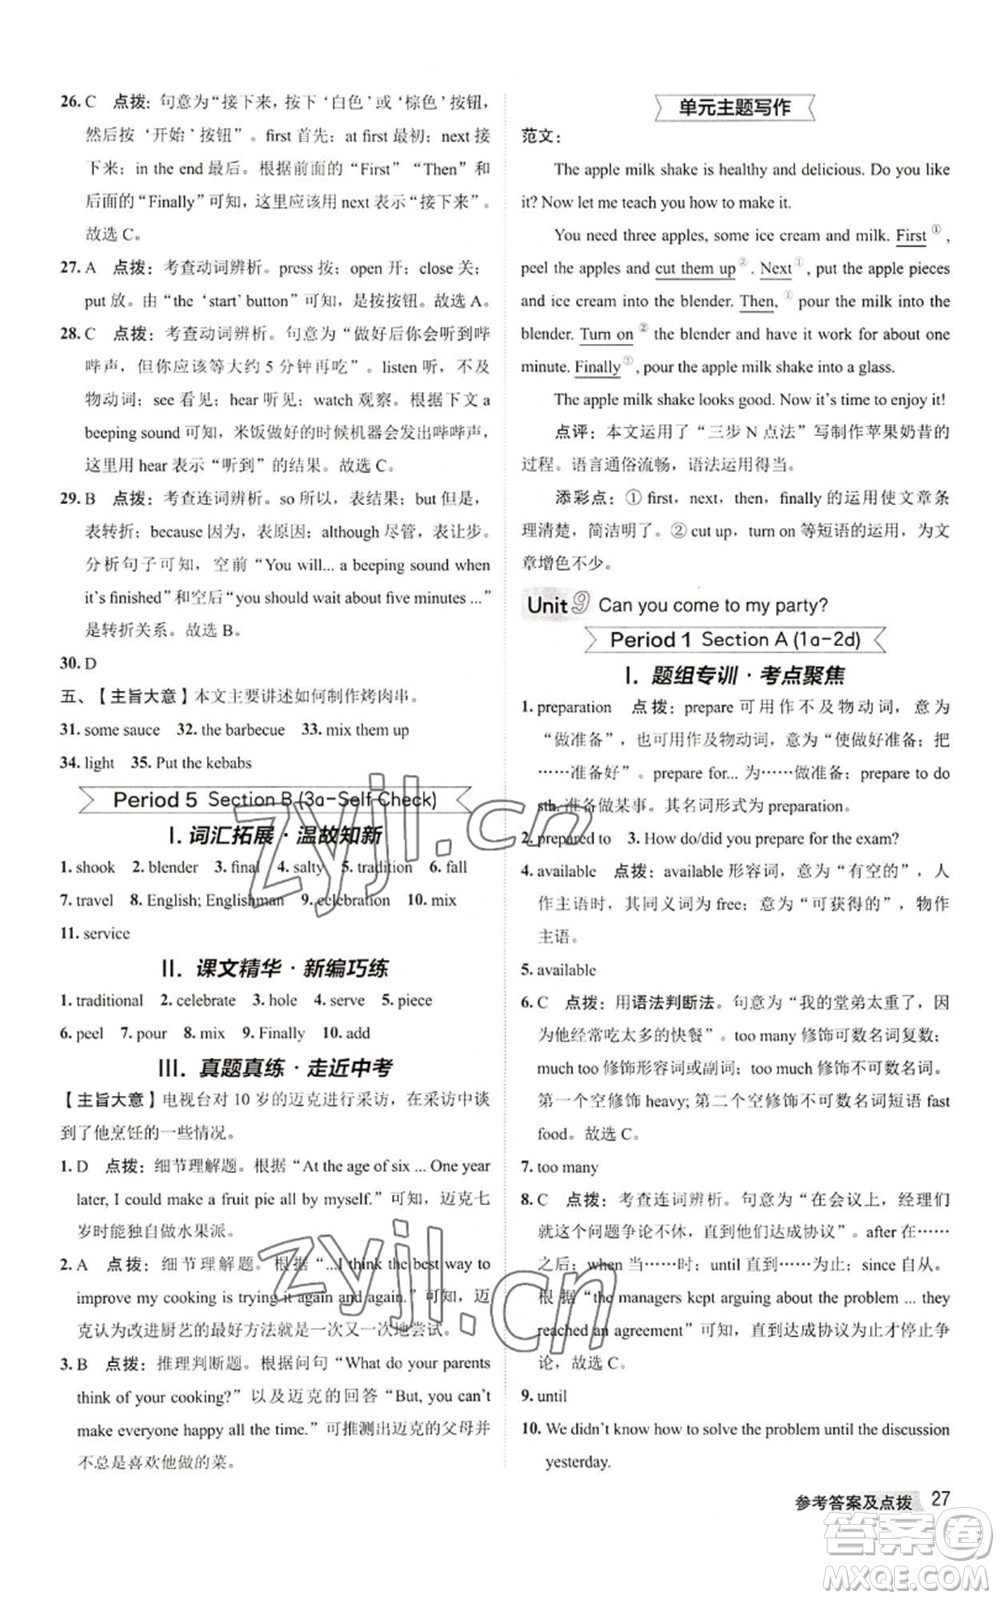 26. C 点拨：句意为“接下来，按下‘白色’或‘棕色’按钮，
然后按‘开始’按钮”。first 首先；at first 最初；next 接
下来；in the end 最后。根据前面的“First”“Then”和
后面的“Finally”可知，这里应该用 next 表示“接下来”。
故选 C。
27. A 点拨：考查动词辨析。press 按；open 开；close 关；
put 放。由“the ‘start’ button”可知，是按按钮。故选 A。
28. C 点拨：考查动词辨析。句意为“做好后你会听到哔
哔声，但你应该等大约 5 分钟再吃”。listen 听，不及
物动词；see 看见；hear 听见；watch 观察。根据下文 a
beeping sound 可知，米饭做好的时候机器会发出哔哔声，
这里用 hear 表示“听到”的结果。故选 C。
29. B 点拨：考查连词辨析。so 所以，表结果；but 但是，
表转折；because 因为，表原因；although 尽管，表让步。
分析句子可知，空前“You will... a beeping sound when
it's finished”和空后“you should wait about five minutes ...”
是转折关系。故选 B。
30. D
五、【主旨大意】本文主要讲述如何制作烤肉串。
31. some sauce 32. the barbecue 33. mix them up
34. light 35. Put the kebabs
Period 5 Section B (3a-Self Check)
I. 词汇拓展·温故知新
1. shook 2. blender 3. final 4. salty 5. tradition 6. fall
7. travel 8. English; Englishman 9. celebration 10. mix
11. service
II. 课文精华·新编巧练
1. traditional 2. celebrate 3. hole 4. serve 5. piece
6. peel 7. pour 8. mix 9. Finally 10. add
III. 真题真练·走近中考
【主旨大意】电视台对 10 岁的迈克进行采访，在采访中谈
到了他烹饪的一些情况。
1. D 点拨：细节理解题。根据“At the age of six ... One year
later, I could make a fruit pie all by myself.”可知，迈克七
岁时能独自做水果派。
2. A 点拨：细节理解题。根据“...I think the best way to
improve my cooking is trying it again and again.”可知，迈
克认为改进厨艺的最好方法就是一次又一次地尝试。
3. B 点拨：推理判断题。根据问句“What do your parents
think of your cooking?”以及迈克的回答“But, you can't
make everyone happy all the time.”可推测出迈克的父母并
不总是喜欢他做的菜。
单元主题写作
范文：
The apple milk shake is healthy and delicious. Do you like
it? Now let me teach you how to make it.
You need three apples, some ice cream and milk. First ①,
peel the apples and cut them up ②. Next ①, put the apple pieces
and ice cream into the blender. Then, ① pour the milk into the
blender. Turn on ② the blender and have it work for about one
minute. Finally ①, pour the apple milk shake into a glass.
The apple milk shake looks good. Now it's time to enjoy it!
点评：本文运用了“三步 N 点法”写制作苹果奶昔的
过程。语言通俗流畅，语法运用得当。
添彩点：① first, next, then, finally 的运用使文章条
理清楚，简洁明了。② cut up, turn on 等短语的运用，为文
章增色不少。
Unit 9 Can you come to my party?
Period 1 Section A (1a-2d)
I. 题组专训·考点聚焦
1. preparation 点拨：prepare 可用作不及物动词，意为
“做准备”，也可用作及物动词，意为“使做好准备；把
……准备好”。prepare for... 为……做准备；prepare to do
sth. 准备做某事。其名词形式为 preparation.
2. prepared to 3. How do/did you prepare for the exam?
4. available 点拨：available 形容词，意为“有空的”，人
作主语时，其同义词为 free；意为“可获得的”，物作
主语。
5. available
6. C 点拨：用语法判断法。句意为“我的堂弟太重了，因
为他经常吃太多的快餐”。too many 修饰可数名词复数；
much too 修饰形容词或副词；too much 修饰不可数名词。
第一个空修饰 heavy; 第二个空修饰不可数名词短语 fast
food。故选 C。
7. too many
8. C 点拨：考查连词辨析。句意为“在会议上，经理们
就这个问题争论不休，直到他们达成协议”。after 在……
之后；when 当……时；until 直到……；since 自从……。
根据“the managers kept arguing about the problem ... they
reached an agreement”可知，直到达成协议为止才停止争
论，故选 C。
9. until
10. We didn't know how to solve the problem until the discussion
yesterday.
参考答案及点拨 27
zyjl.cn
zyjl.cn
答案圈
MXQE.COM